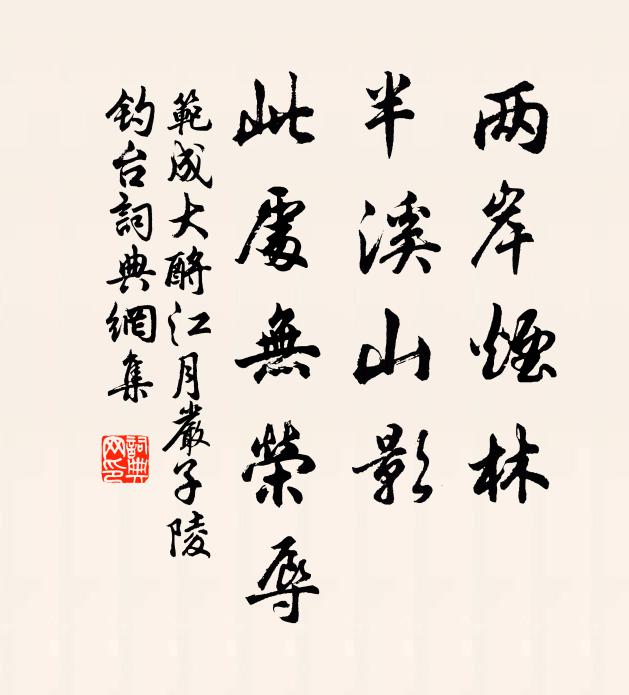 两岸煙林
半溪山影
此處無榮辱
範成大酹江月嚴子陵
釣台詞典網集
詞典网印